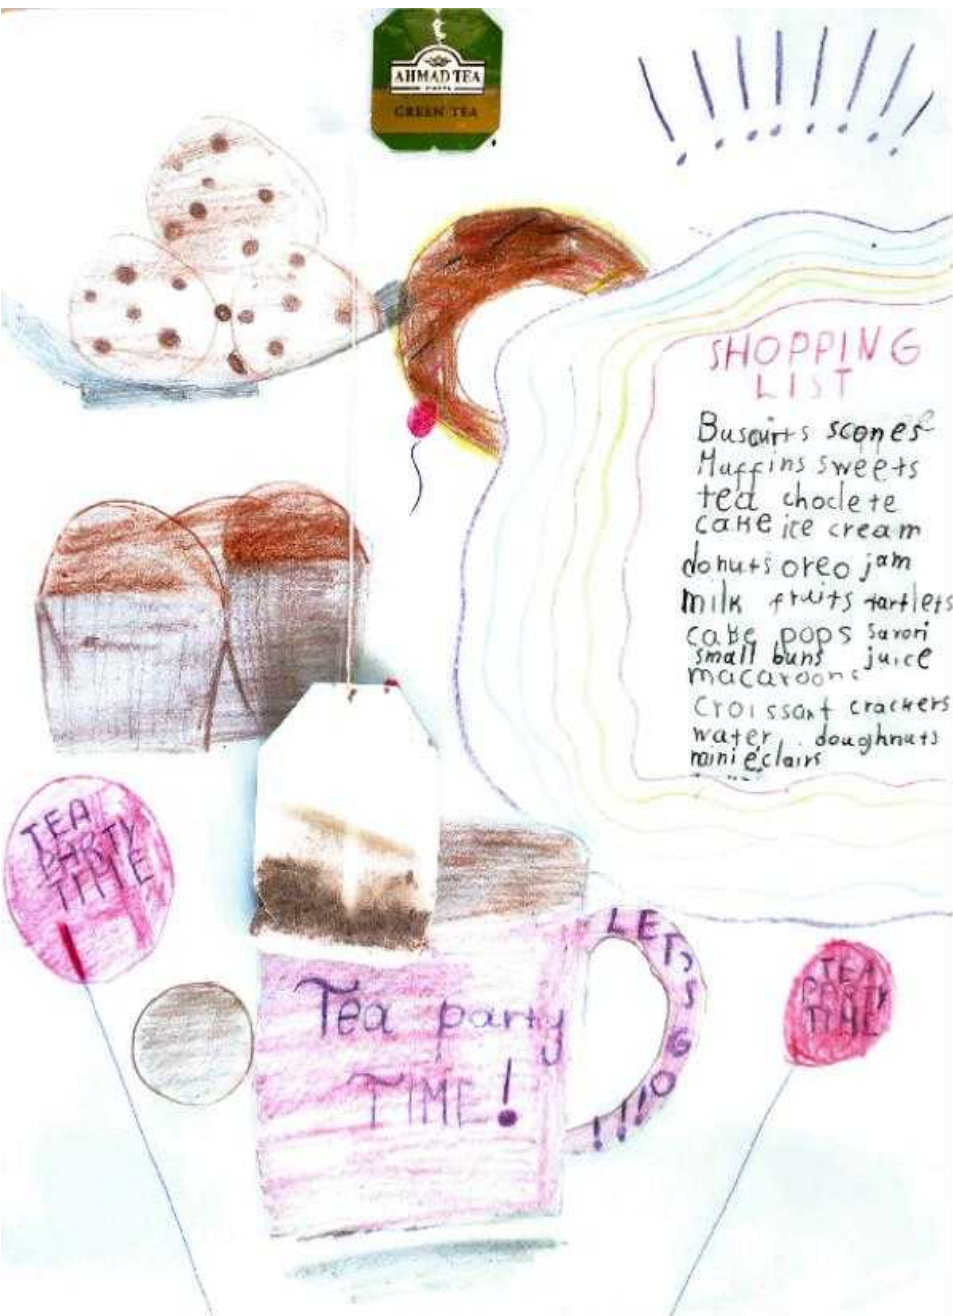 AHMAD TEA
GREEN TEA
SHOPPING
LIST
Buscuirts scones
Muffins sweets
tea choclete
cake ice cream
donuts oreo jam
milk fruits tartlets
cake pops savori
small buns juice
macaroons
Croissant crackers
water doughnuts
mini éclairs
TEA
PARTY
TIME
LET'S GO!!!
Tea party
TIME!
TEA
PARTY
TIME